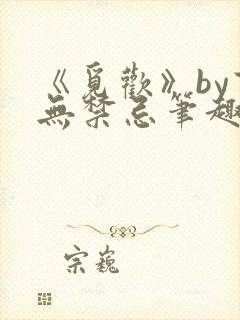 《覓歡》by
無禁忌筆趣
宗巍